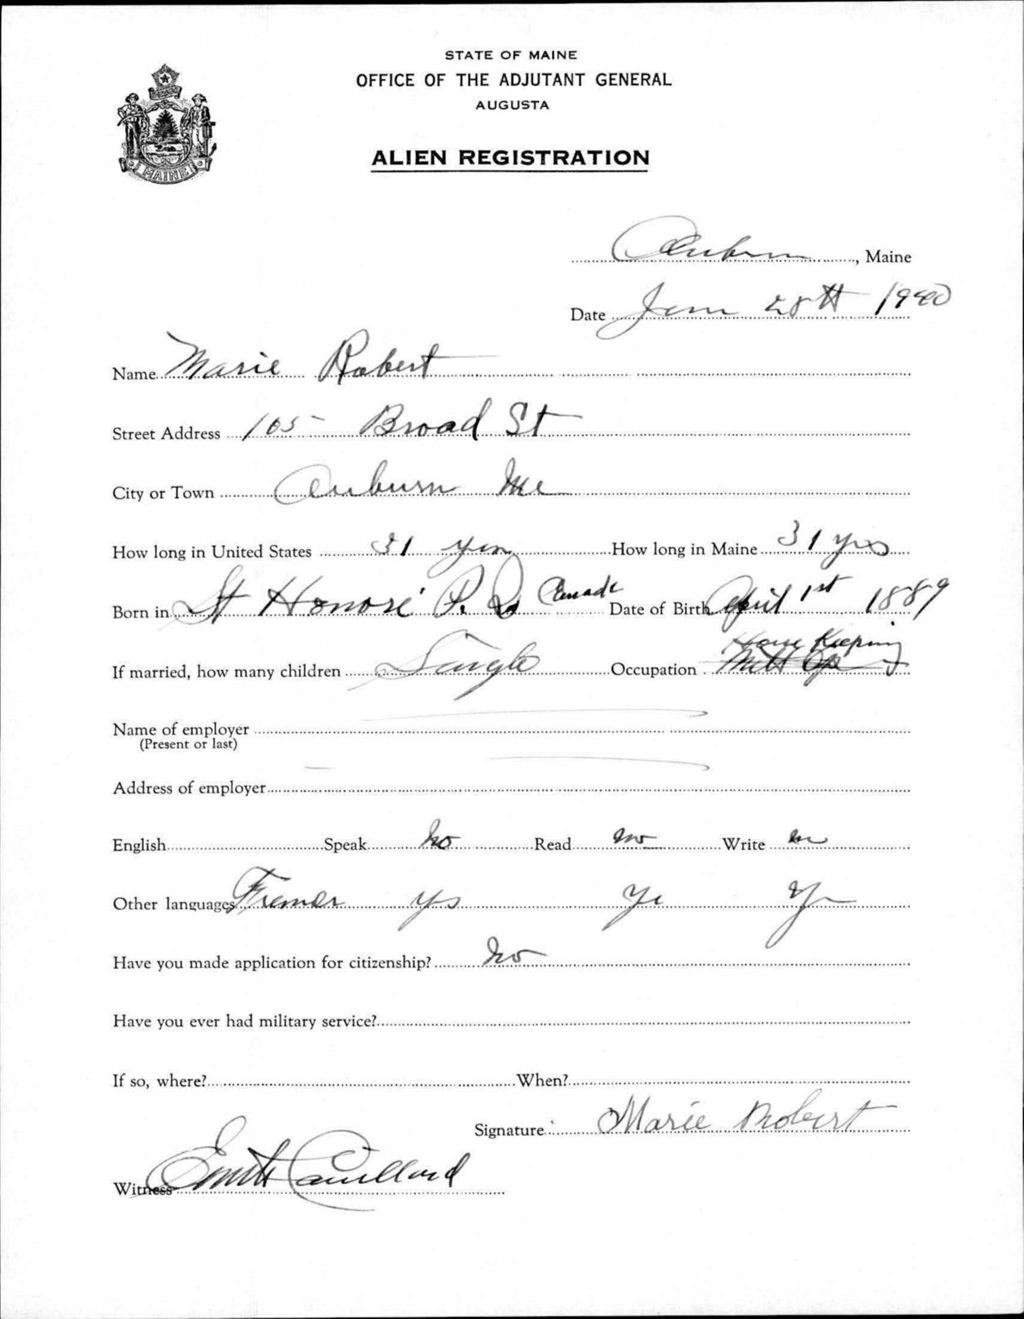 STATE OF MAINE
OFFICE OF THE ADJUTANT GENERAL
AUGUSTA
MAINE
ALIEN REGISTRATION
Auburn, Maine
Date June 28th 1940
Name Marie Robert
Street Address 105 Broad St
City or Town Auburn Me
How long in United States 31 yrs How long in Maine 31 yrs
Born in St Honoré P. Q Canada Date of Birth April 1st 1889
House Keeping
If married, how many children Single Occupation Mill Op
Name of employer
(Present or last)
Address of employer
English Speak no Read no Write no
Other languages French yes ye ye
Have you made application for citizenship? no
Have you ever had military service?
If so, where? When?
Signature Marie Robert
Witness